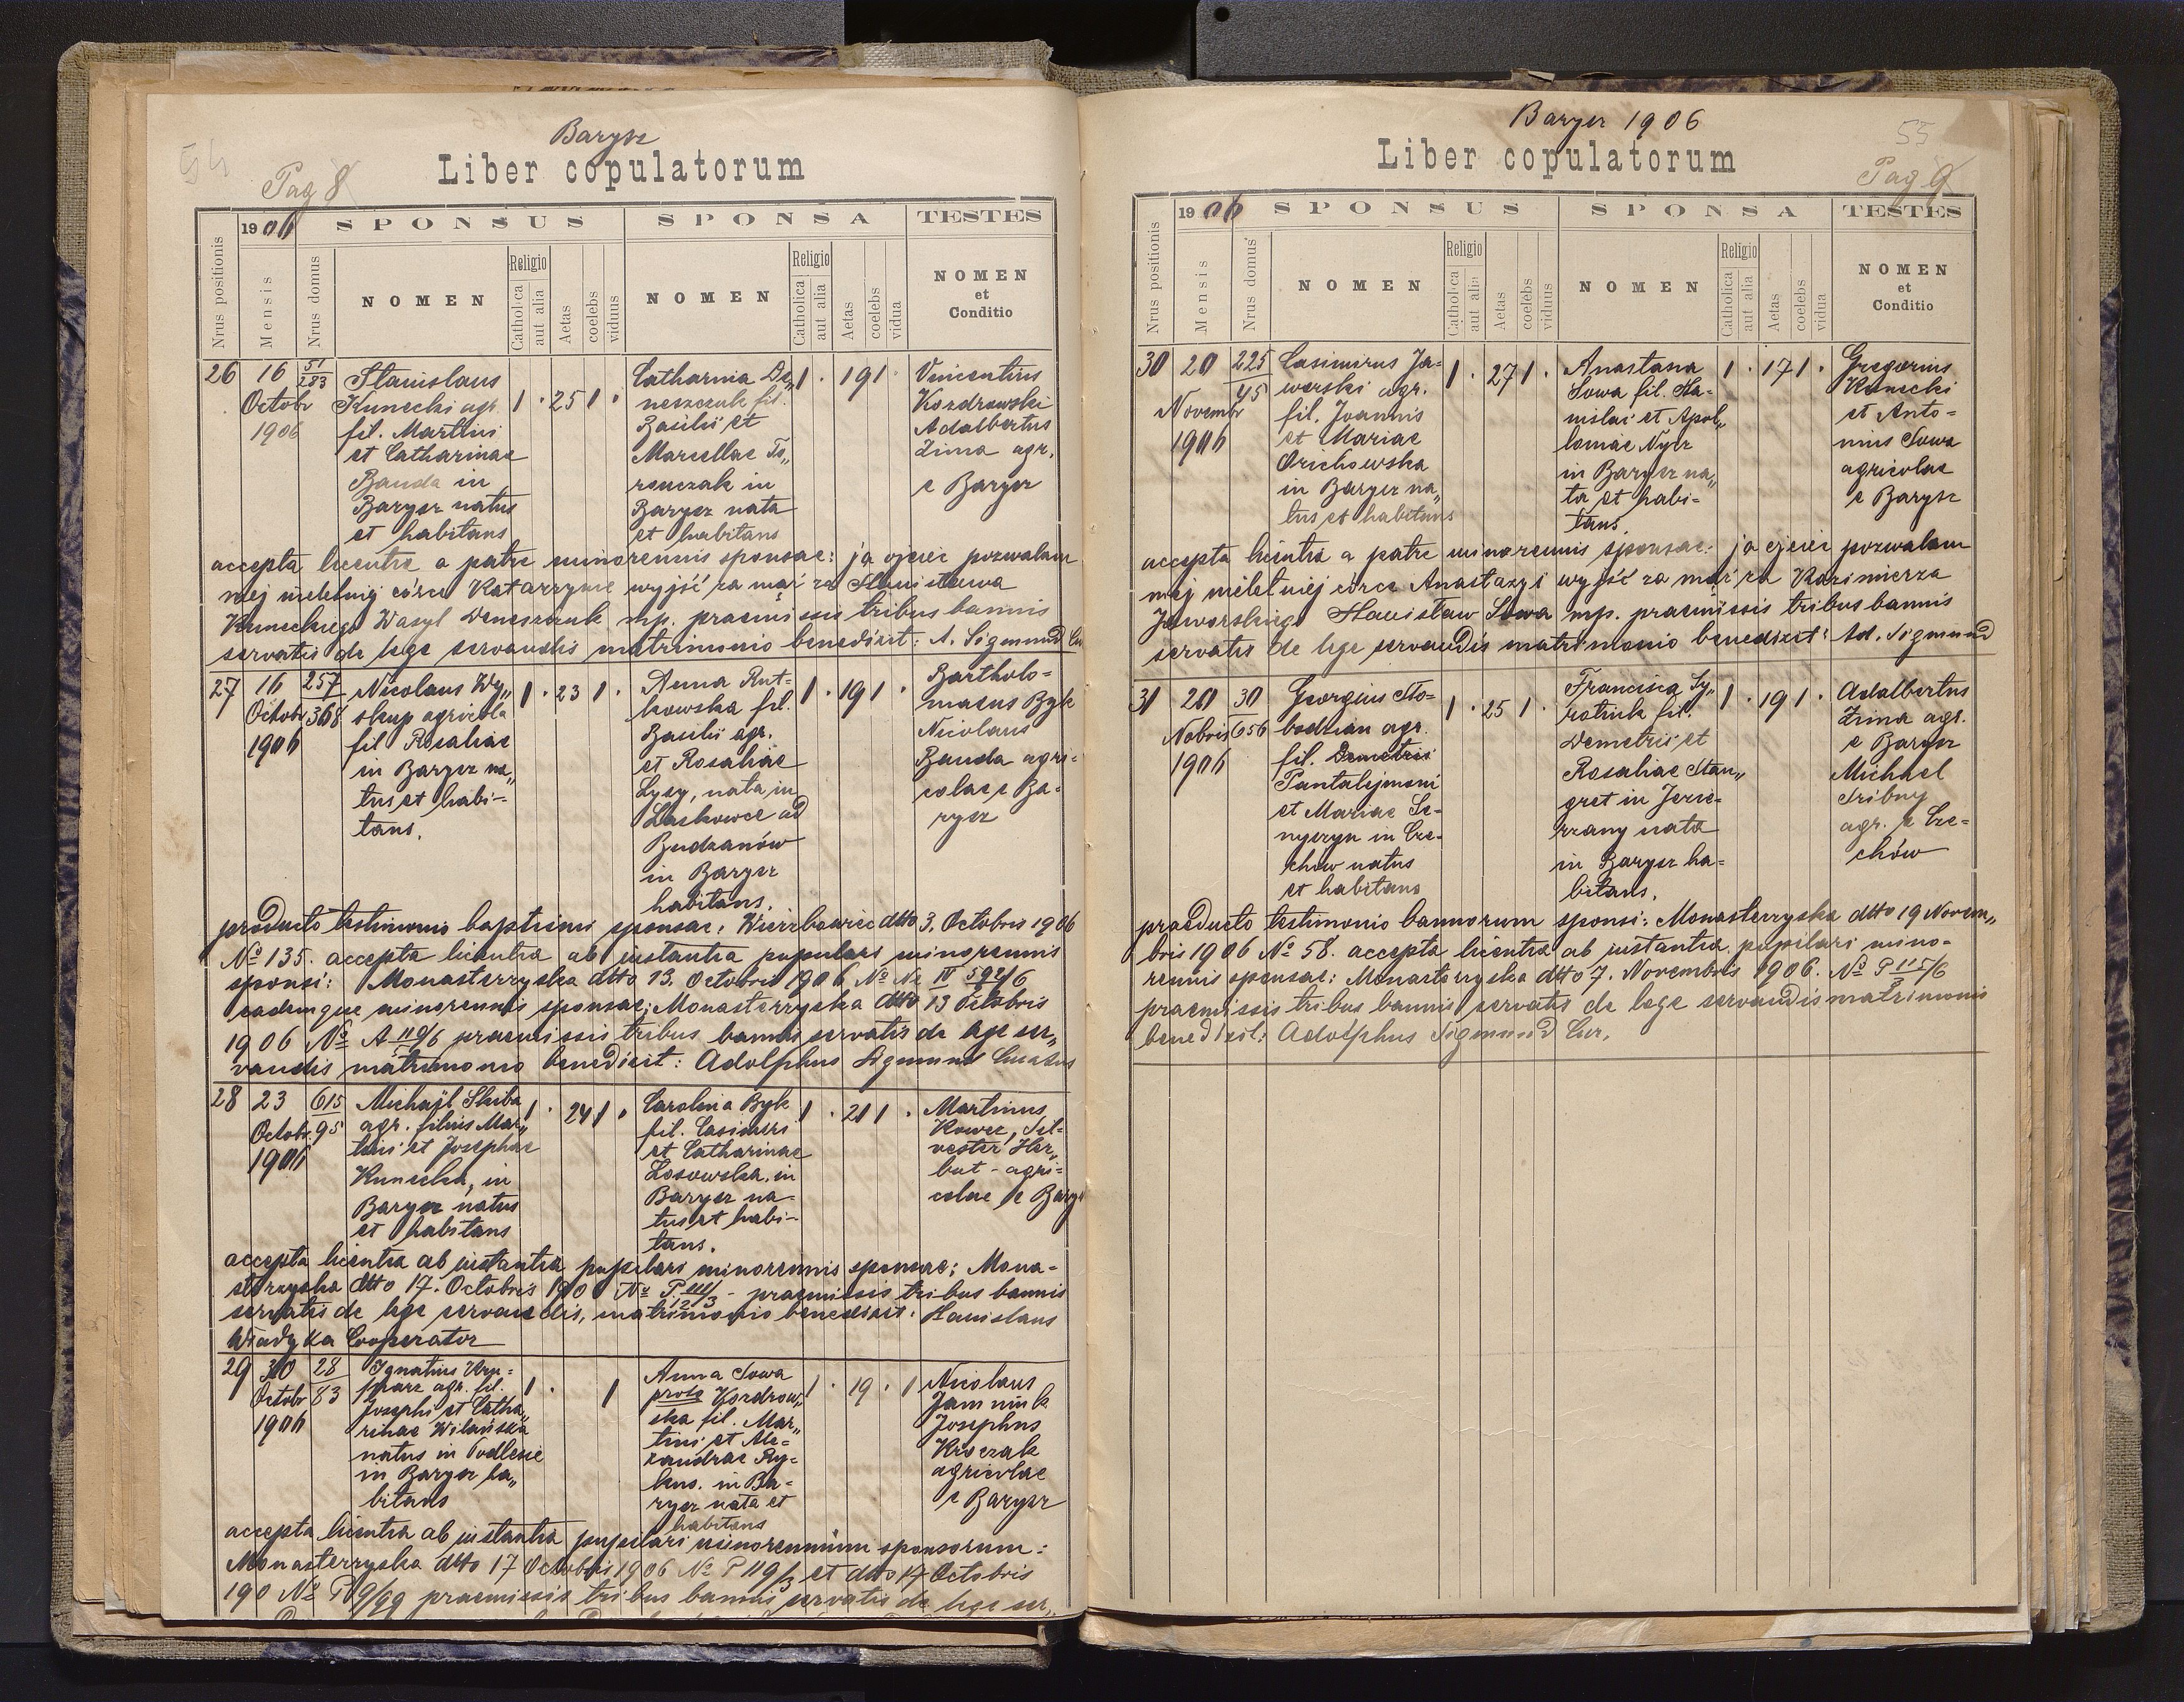 Barysz
Liber copulatorum
54
Pag 8
1906
SPONSUS
SPONSA
TESTES
Nrus positionis
Mensis
Nrus domus
NOMEN
Religio
Catholica
aut alia
Aetas
coelebs
viduus
NOMEN
Religio
Catholica
aut alia
Aetas
coelebs
vidua
NOMEN
et
Conditio
26
16
Octobr
1906
51
283
Stanislaus
Kunecki agr.
fil. Martini
et Catharinae
Bauda in
Barysz natus
et habitans
1 . 25 1 .
Catharina De„
neszczuk fil.
Basilii et
Marcellae To„
ronczak in
Barysz nata
et habitans
1 . 19 1 .
Vincentius
Kozdrowski
Adalbertus
Zima agr.
e Barysz
accepta licentia a patre minorennis sponsae: ja ojciec pozwalam
mej nieletniej córce Katarzynie wyjść za mąż za Stanisława
Kuneckiego Wasyl Deneszczuk mp. praemissis tribus bannis
servatis de lege servandis matrimonio benedixit: A. Sigmund
27
16
Octobr
1906
257
368
Nicolaus Wy„
skup agricola
fil Rosaliae
in Barysz na„
tus et habi-
tans.
1 . 23 1 .
Anna Rut-
kowska fil.
Basilii agr.
et Rosaliae
Lysy, nata in
Laskowce ad
Budzanów
in Barysz
habitans.
1 . 19 1 .
Bartholo-
maeus Byk
Nicolaus
Bauda agri-
colae e Ba-
rysz
producto testimonio baptismi sponsae: Wierzbowiec dtto 3. Octobris 1906
№ 135. accepta licentia ab instantia pupilari minorennis
sponsi: Monasterzyska dtto 13. Octobris 1906
eademque minorennis sponsae; Monasterzyska dtto 13 Octobris
1906 № praemissis tribus bannis servatis de lege ser„
vandis matrimonio benedixit: Adolphus Sigmund
28
23
Octobr.
1906
615
95
Michajl Skiba
agr. filius Mar„
tini et Josephae
Kunecka, in
Barysz natus
et habitans
1 . 24 1 .
Carolina Byk
fil. Casimiri
et Catharinae
Losowska, in
Barysz na-
tus et habi-
tans.
1 . 21 1 .
Martinus
Kowcz, Sil-
vester Her„
but - agri-
colae e Barysz
accepta licentia ab instantia pupilari minorennis sponsae; Mona-
sterzyska dtto 17. Octobris 190 praemissis tribus bannis
servatis de lege servandis, matrimonio benedixit: Stanislaus
Wladyka Cooperator
29
30
Octobr
1906
28
83
Ignatius
agr. fil.
Josephi et Catha„
rinae Wilańska
natus in Podlesie
in Barysz ha„
bitans
1 . 1
Anna Sowa
Kozdrow„
ska fil. Mar„
tini et Ale-
xandrae Ry-
in Ba-
rysz nata et
habitans
1 . 19 . 1
Nicolaus
Josephus
Kroczak
agricolae
e Barysz
accepta licentia ab instantia pupilari minorennium sponsorum:
Monasterzyska dtto 17 Octobris 1906 № et dtto 17 Octobris
190 № praemissis tribus bannis servatis de lege ser„
Barysz 1906
Liber copulatorum
55
Pag 9
1906
SPONSUS
SPONSA
TESTES
Nrus positionis
Mensis
Nrus domus
NOMEN
Religio
Catholica
aut alia
Aetas
coelebs
viduus
NOMEN
Religio
Catholica
aut alia
Aetas
coelebs
vidua
NOMEN
et
Conditio
30
20
Novembr
1906
225
45
Casimirus Ja-
worski agr.
fil. Joannis
et Mariae
Orichowska
in Barysz na„
tus et habitans
1 . 27 1 .
Anastasia
Sowa fil. Sta-
nislai et Apol„
loniae Nyez
in Barysz na„
ta et habi-
tans.
1 . 17 1 .
Gregorius
Kunecki
et Anto-
nius Sowa
agricolae
e Barysz
accepta licentia a patre minorennis sponsae: ja ojciec pozwalam
mej nieletniej córce Anastazyi wyjść za mąż za Kazimierza
Jaworskiego Stanisław Sowa mp. praemissis tribus bannis
servatis de lege servandis matrimonio benedixit: Ad. Sigmund
31
20
Nobris
1906
30
656
Georgius Sto-
bodzian agr.
fil. Demetrii
Pantalejmoni
et Mariae Se-
nyszyn in Cze-
chów natus
et habitans
1 . 25 1 .
Francisca Sy„
rotiuk fil.
Demetrii et
Rosaliae Stan„
gret in Jezie-
rzany nata
in Barysz ha-
bitans.
1 . 19 1 .
Adalbertus
Zima agr.
e Barysz
Michael
Sribny
agr. e Cze-
chów
producto testimonio bannorum sponsi: Monasterzyska dtto 19 Novem„
bris 1906 № 58. accepta licentia ab instantia pupilari mino-
rennis sponsae: Monasterzyska dtto 7. Novembris 1906.
praemissis tribus bannis servatis de lege servandis matrimonio
benedixit: Adolphus Sigmund Cur.